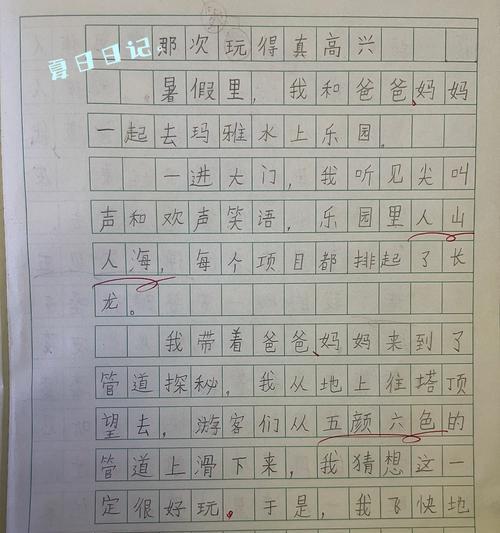 夏日日记。
那次玩得真高兴
暑假里，我和爸爸、妈妈
一起去玛雅水上乐园。
一进大门，我听见尖叫
声和欢声笑语，乐园里人山
人海，每个项目都排起了长
龙。
我带着爸爸、妈妈来到了
管道探秘，我从地上往塔顶
望去，游客们从五颜六色的
管道上滑下来，我猜想这一
定很好玩。于是，我飞快地